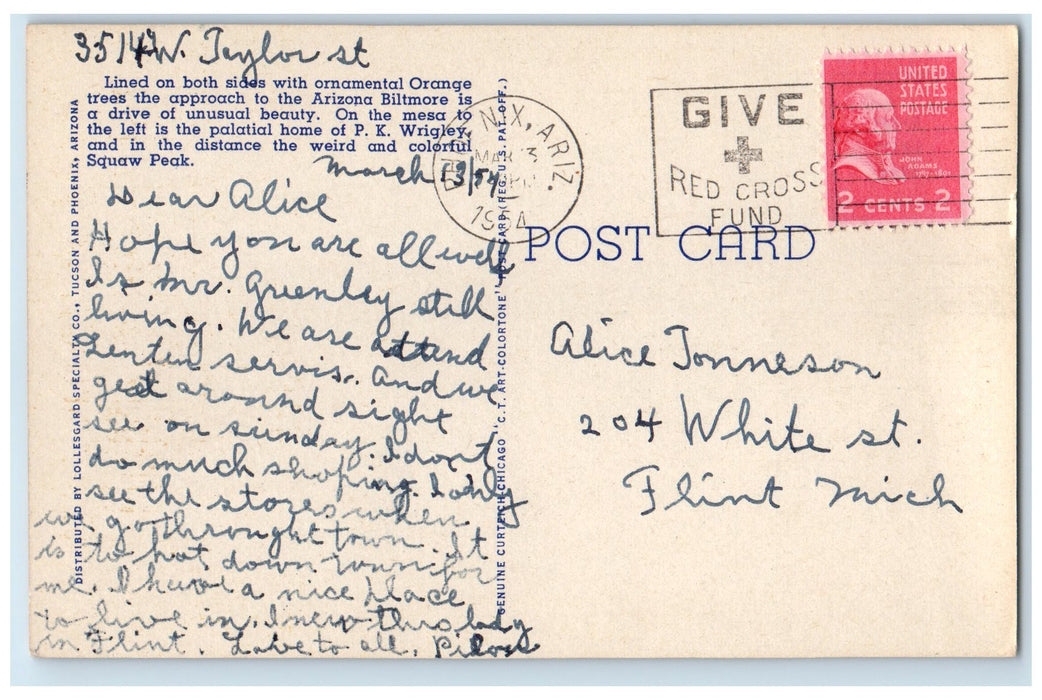 3514 W. Taylor st
Lined on both sides with ornamental Orange
trees the approach to the Arizona Biltmore is
a drive of unusual beauty. On the mesa to
the left is the palatial home of P. K. Wrigley,
and in the distance the weird and colorful
Squaw Peak.
March 13/54
Dear Alice
Hope you are all well
Is Mr. Greenley still
living. We are attend
Lenten servis. And we
get around sight
see on sunday. I dont
do much shoping. I only
see the stores when
we go throught town. It
is to hot down town for
me. I have a nice place
to live in. I new this lady
in Flint. Love to all.
DISTRIBUTED BY LOLLESGARD SPECIALTY CO., TUCSON AND PHOENIX, ARIZONA
GENUINE CURTEICH-CHICAGO "C.T. ART-COLORTONE" POST CARD (REG. U.S. PAT. OFF.)
NIX, ARIZ.
MAR 13
1954
GIVE
RED CROSS
FUND
UNITED
STATES
POSTAGE
JOHN
ADAMS
1797-1801
2 CENTS 2
POST CARD
Alice Tonneson
204 White st.
Flint Mich